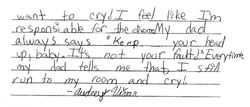 want to cry! I feel like I'm
responsible for the divorce. My dad
always says "Keep your head
up, baby. It's not your fault." Everytime
my dad tells me that, I still
run to my room and cry!
-Audrey